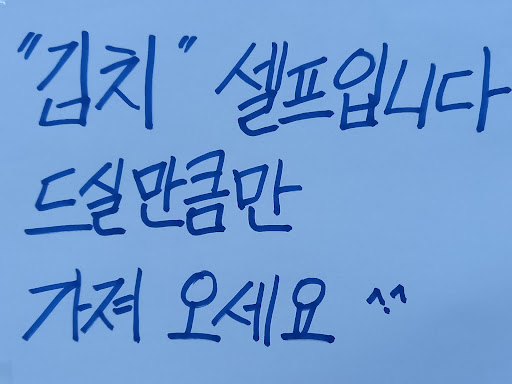 "김치" 셀프입니다
드실만큼만
가져 오세요 ^.^